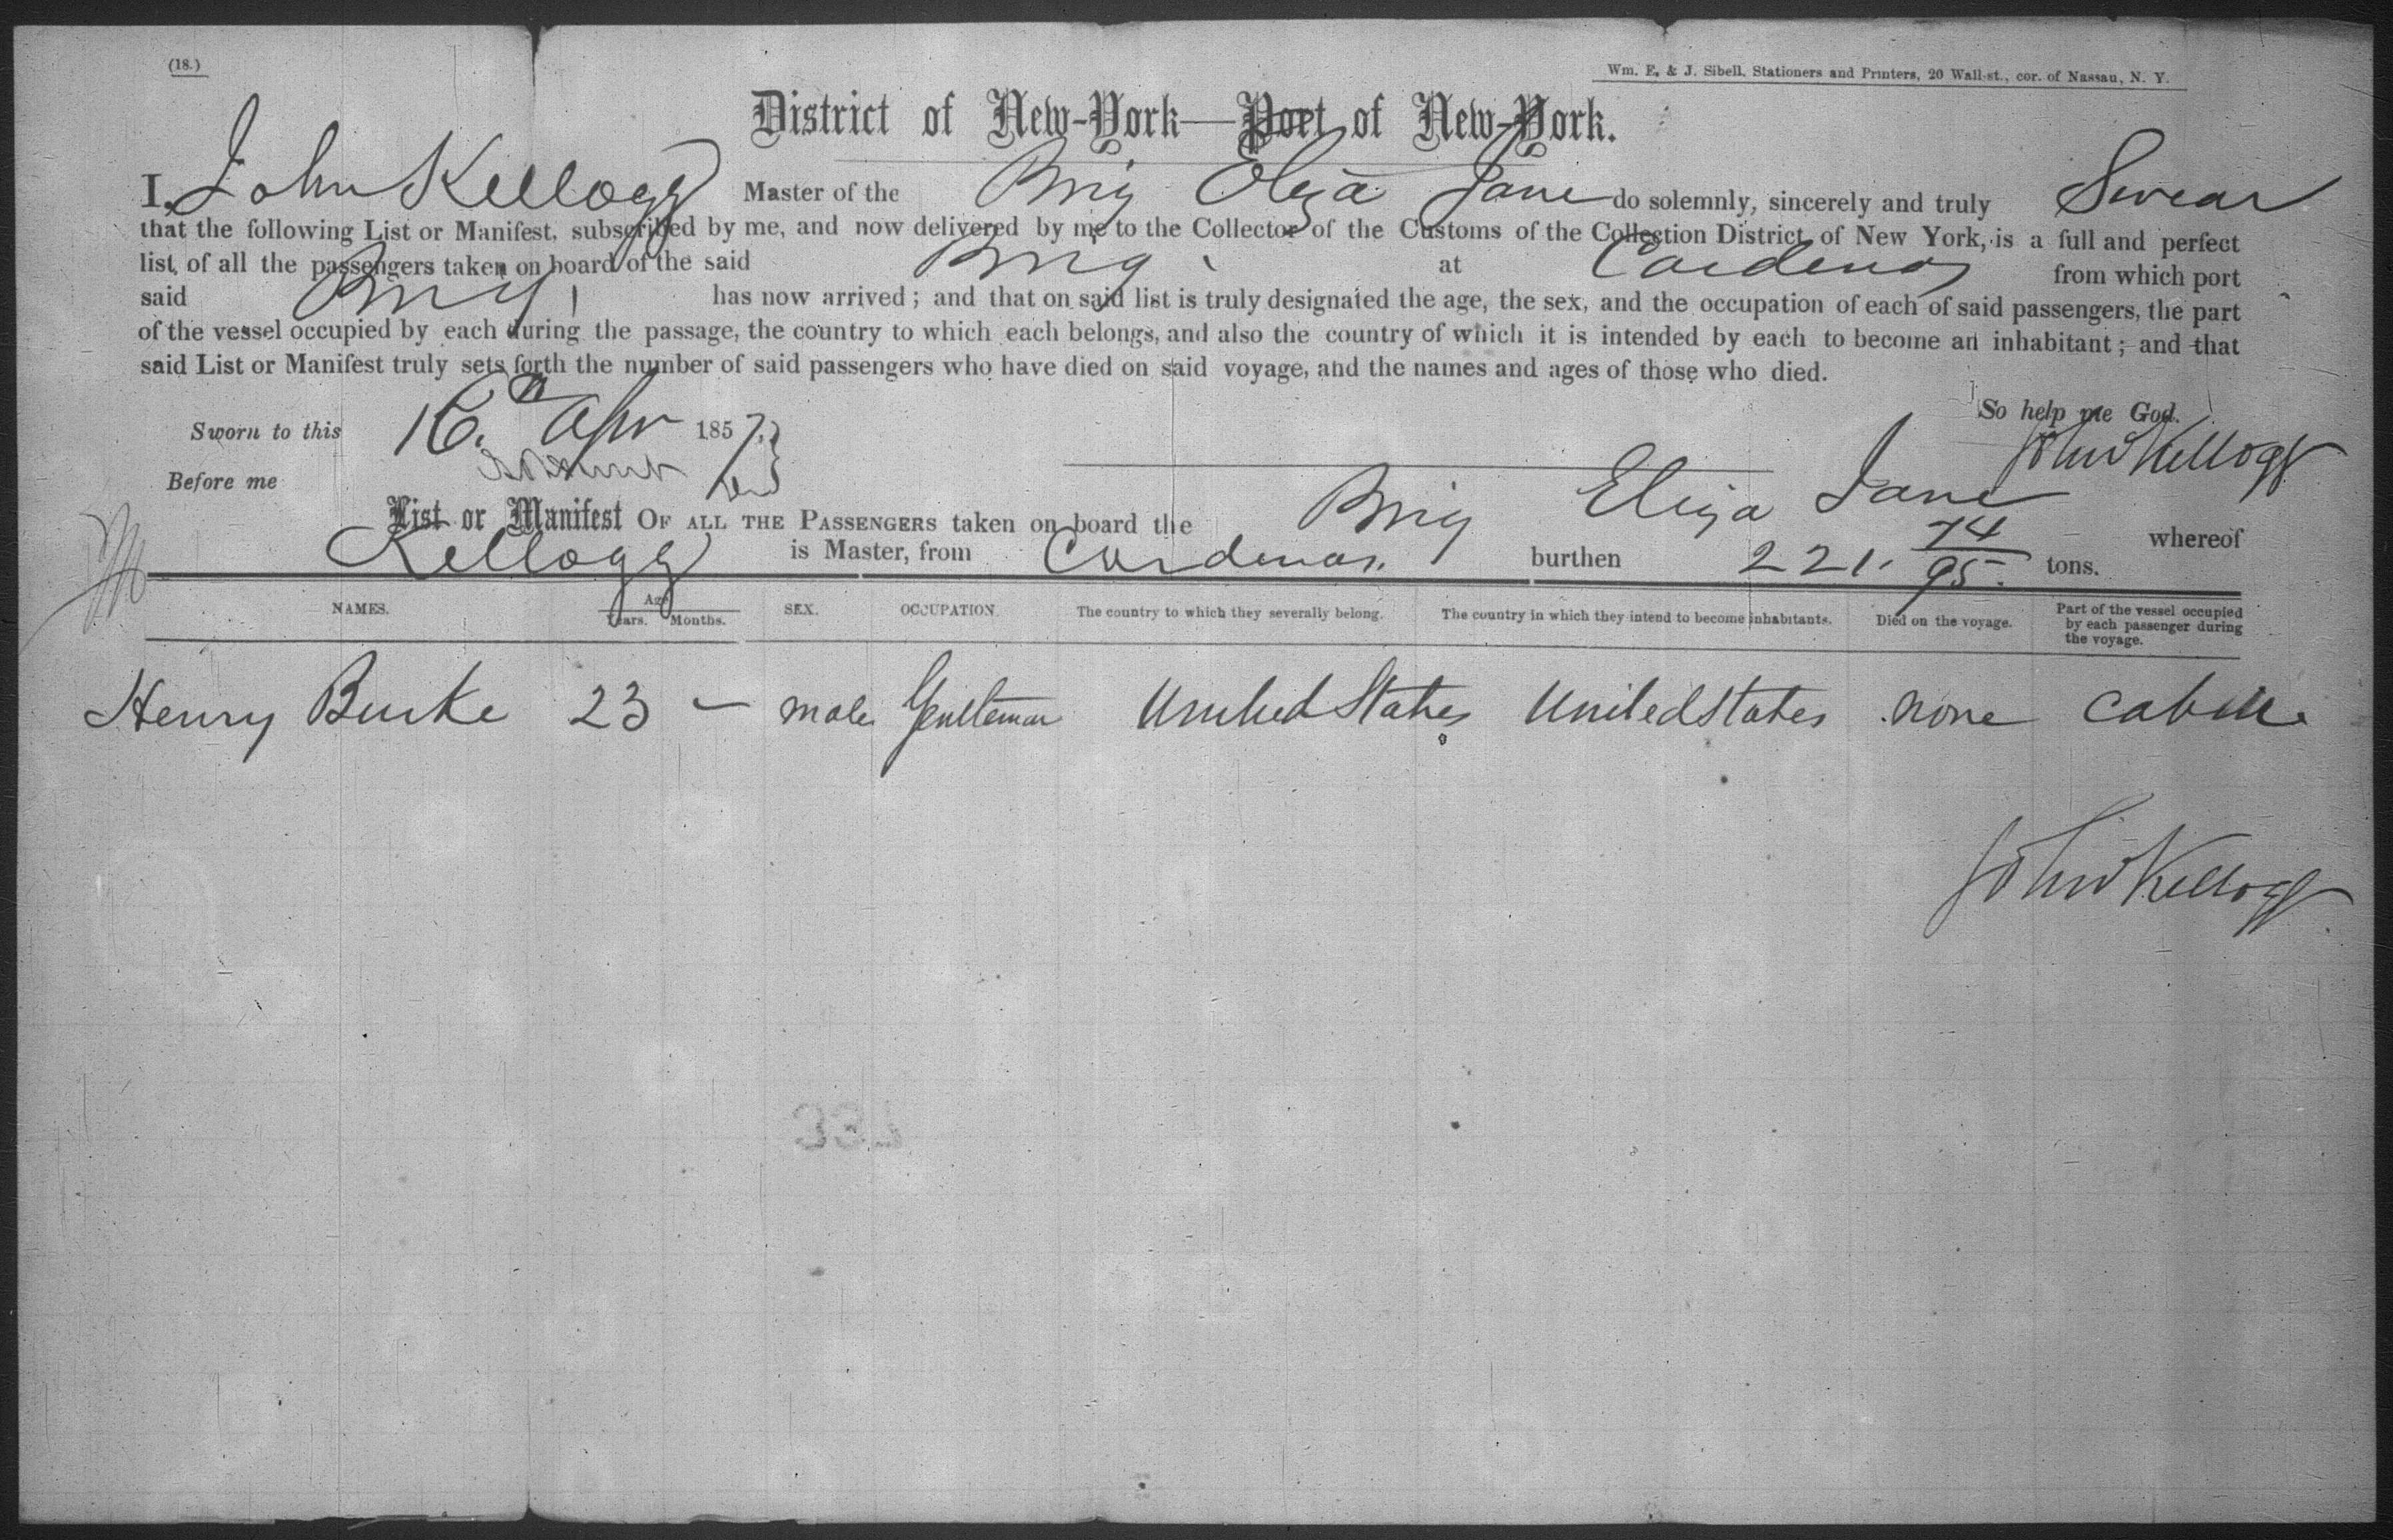 (18.)
Wm. E. & J. Sibell, Stationers and Printers, 20 Wall-st., cor. of Nassau, N. Y.
District of New-York—Port of New-York.
I, John Kellogg Master of the Brig Eliza Jane do solemnly, sincerely and truly Swear
that the following List or Manifest, subscribed by me, and now delivered by me to the Collector of the Customs of the Collection District of New York, is a full and perfect
list of all the passengers taken on board of the said Brig at Cardenas from which port
said Brig has now arrived; and that on said list is truly designated the age, the sex, and the occupation of each of said passengers, the part
of the vessel occupied by each during the passage, the country to which each belongs, and also the country of which it is intended by each to become an inhabitant; and that
said List or Manifest truly sets forth the number of said passengers who have died on said voyage, and the names and ages of those who died.
So help me God.
Sworn to this 16th Apr 1857.
John Kellogg
Before me
List or Manifest OF ALL THE PASSENGERS taken on board the Brig Eliza Jane whereof
Kellogg is Master, from Cardenas. burthen 221. 74/95. tons.
NAMES. Age Years. Months. SEX. OCCUPATION. The country to which they severally belong. The country in which they intend to become inhabitants. Died on the voyage. Part of the vessel occupied by each passenger during the voyage.
Henry Burke 23 — male Gentleman United States United States none cabin
John Kellogg
337